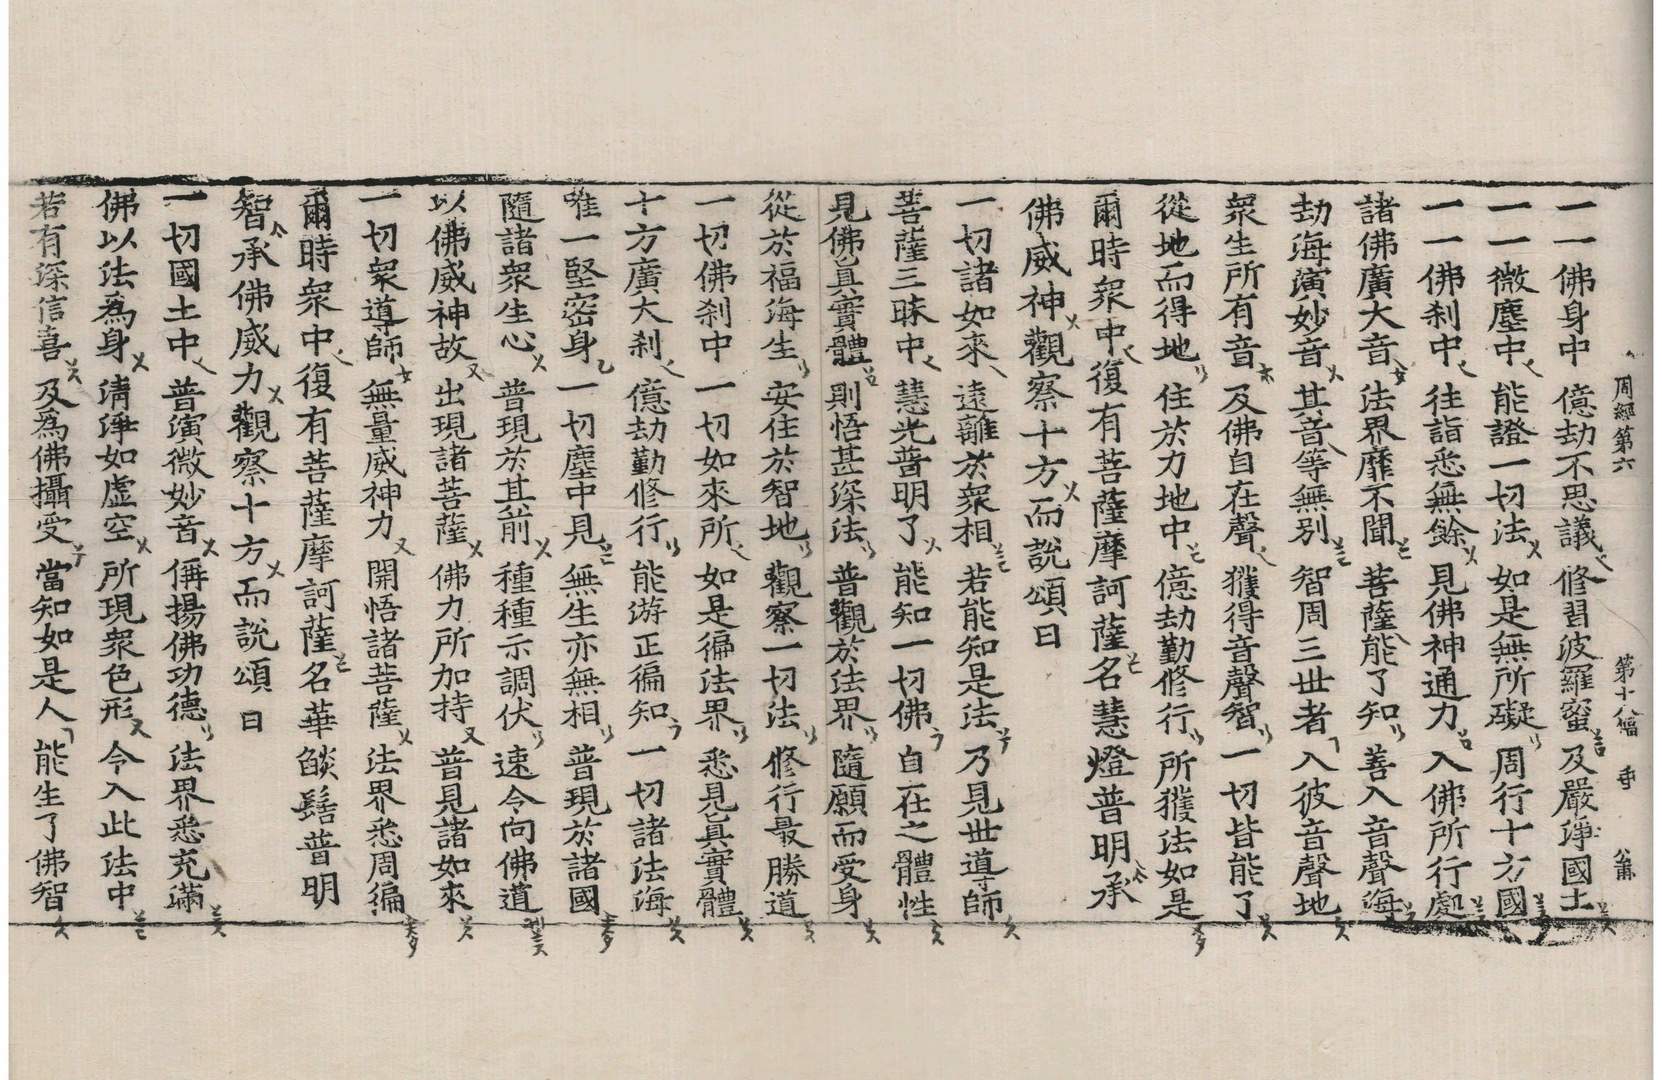 周經第六　第十八幅　寺　公甫
一一佛身中　億劫不思議　修習波羅蜜　及嚴淨國土
一一微塵中　能證一切法　如是無所礙　周行十方國
一一佛刹中　往詣悉無餘　見佛神通力　入佛所行處
諸佛廣大音　法界靡不聞　菩薩能了知　善入音聲海
劫海演妙音　其音等無別　智周三世者　入彼音聲地
衆生所有音　及佛自在聲　獲得音聲智　一切皆能了
從地而得地　住於力地中　億劫勤修行　所獲法如是
爾時衆中復有菩薩摩訶薩名慧燈普明承
佛威神觀察十方而說頌曰
一切諸如來　遠離於衆相　若能知是法　乃見世導師
菩薩三昧中　慧光普明了　能知一切佛　自在之體性
見佛眞實體　則悟甚深法　普觀於法界　隨願而受身
從於福海生　安住於智地　觀察一切法　修行最勝道
一切佛刹中　一切如來所　如是徧法界　悉見眞實體
十方廣大刹　億劫勤修行　能游正徧知　一切諸法海
唯一堅密身　一切塵中見　無生亦無相　普現於諸國
隨諸衆生心　普現於其前　種種示調伏　速令向佛道
以佛威神故　出現諸菩薩　佛力所加持　普見諸如來
一切衆導師　無量威神力　開悟諸菩薩　法界悉周徧
爾時衆中復有菩薩摩訶薩名華燄髻普明
智承佛威力觀察十方而說頌曰
一切國土中　普演微妙音　稱揚佛功德　法界悉充滿
佛以法爲身　清淨如虛空　所現衆色形　令入此法中
若有深信喜　及爲佛攝受　當知如是人　能生了佛智